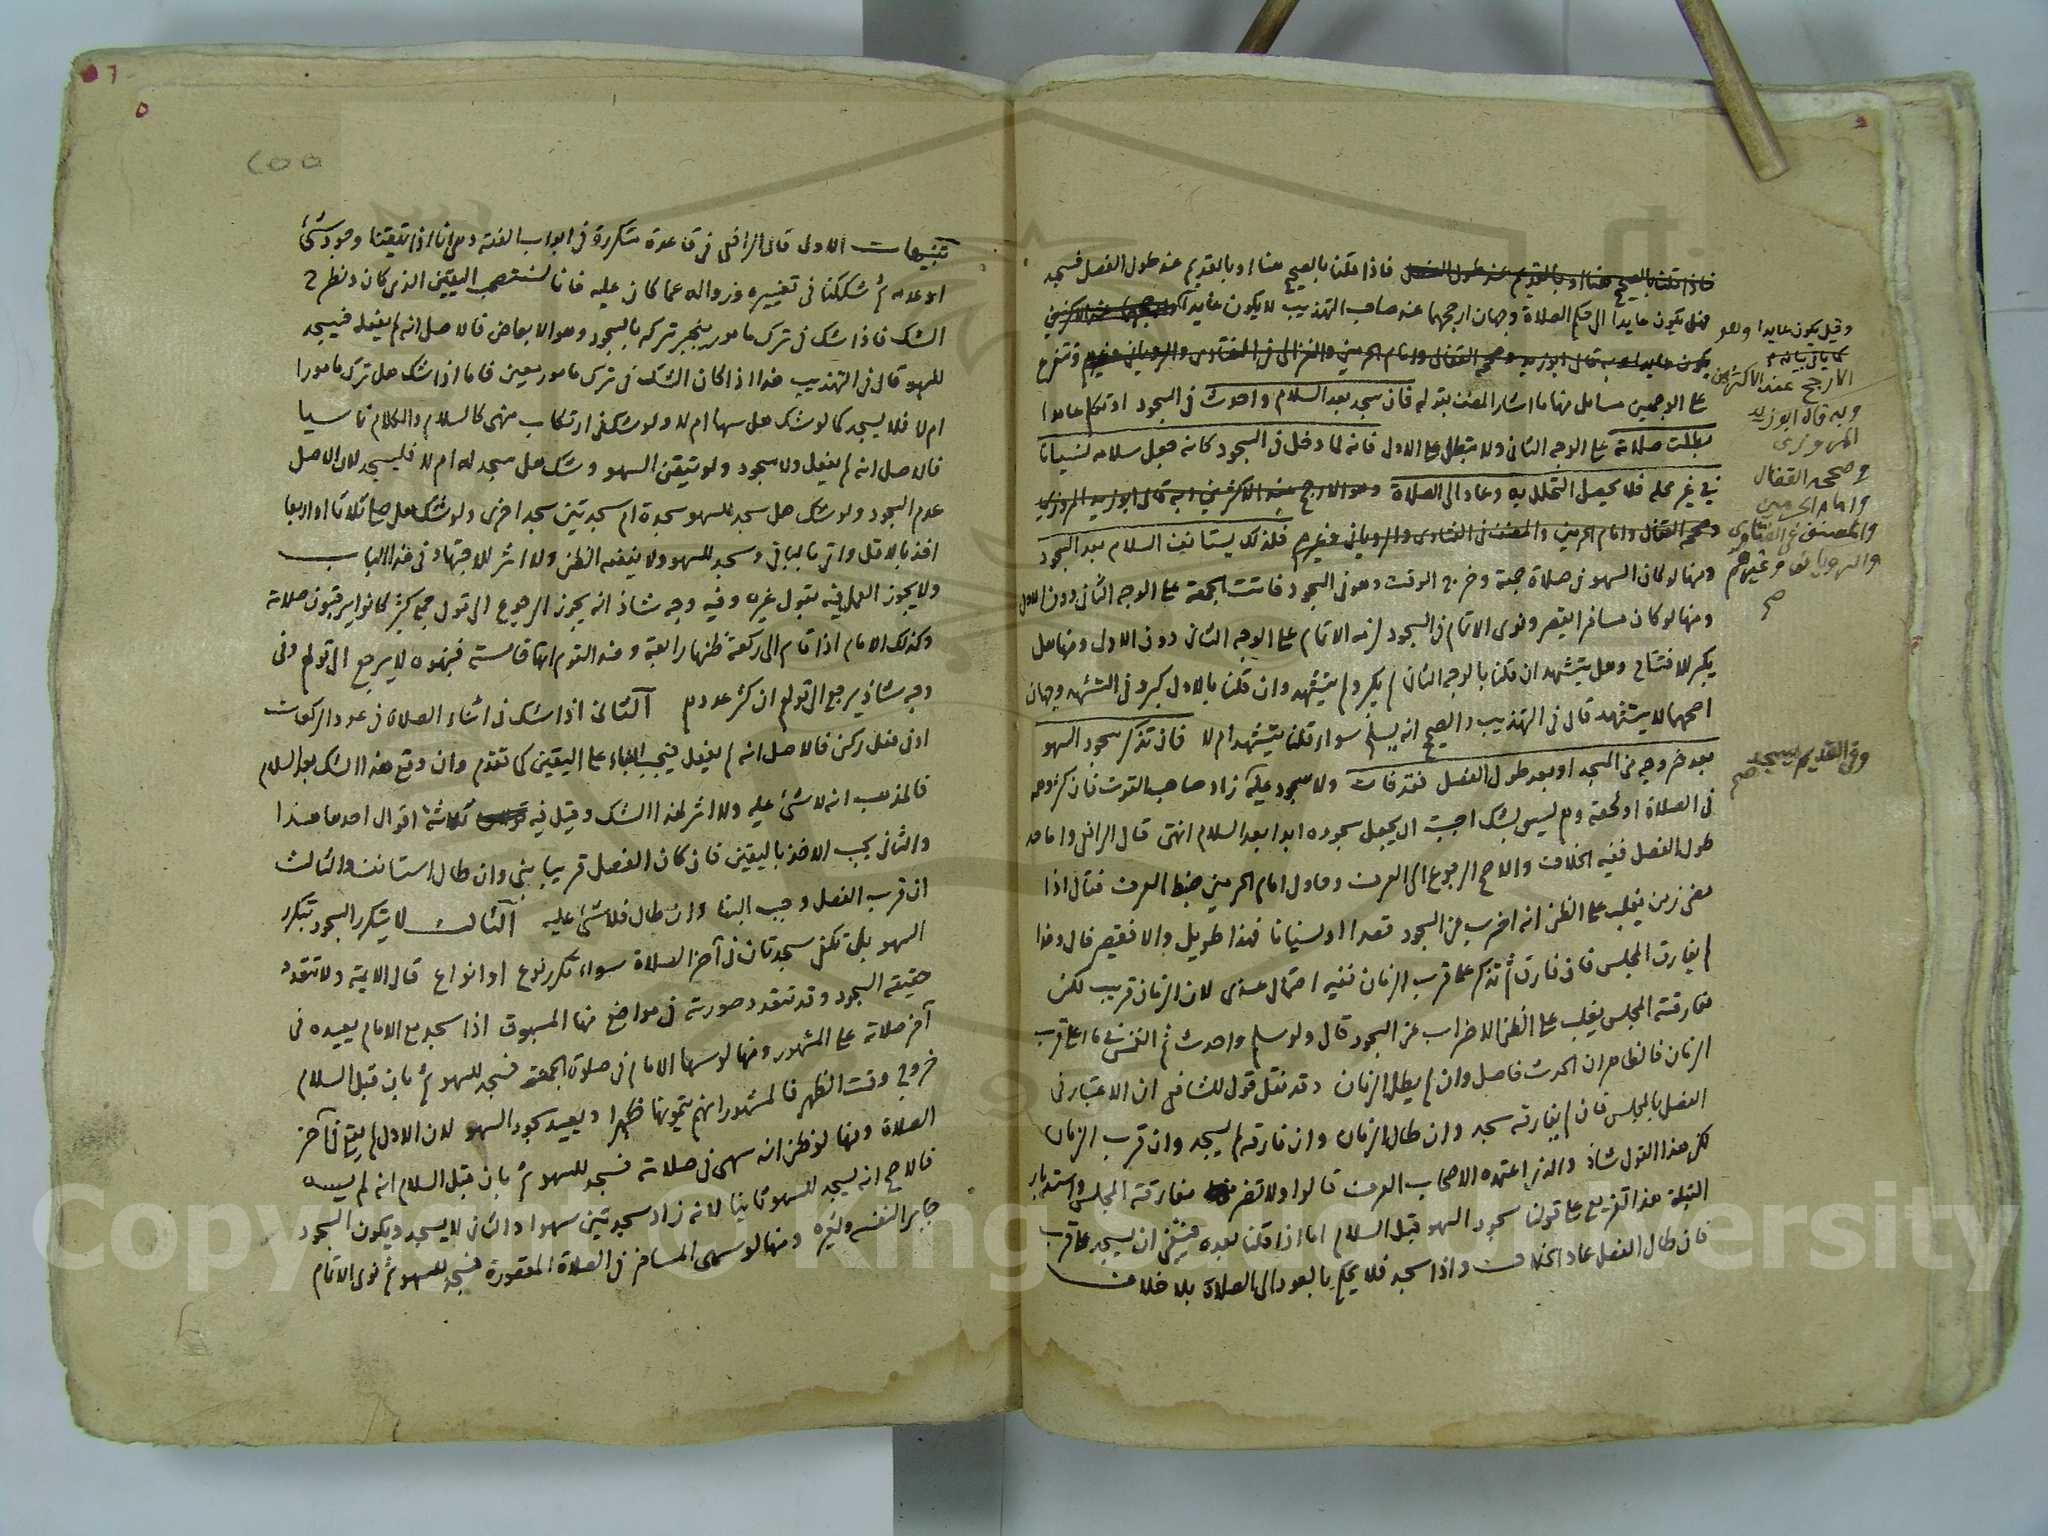 فاذا قلنا بالصحيح هنا او بالقديم عند طول الفصل فاذا قلنا بالصحيح هنا او بالقديم عند طول الفصل فسجد
فهل يكون عايدا الى حكم الصلاة وجهان ارجحهما عند صاحب التهذيب لا يكون عايدا وارجحهما عند الاكثرين
يكون عايدا وبه قال ابو زيد وصححه القفال وامام الحرمين والغزالي في الفتاوى والروياني وغيرهم وتتفرع
على الوجهين مسايل منها ما اشار المصنف بقوله فان سجد بعد السلام واحدث في السجود او تكلم عامدا
بطلت صلاته على الوجه الثاني ولا تبطل على الاول فانه لما دخل في السجود كانه جعل سلامه نسيانا
في غير محله فلا يحصل التحلل به وعاد الى الصلاة وهو الارجح عند الاكثرين وبه قال ابو زيد المروزي
وصححه القفال وامام الحرمين والمصنف في الفتاوى والروياني وغيرهم فلذلك يستانف السلام بعد السجود
ومنها لو كان السهو في صلاة جمعة وخرج الوقت وهو في السجود فاتت الجمعة على الوجه الثاني دون الاول
ومنها لو كان مسافرا يقصر ونوى الاتمام في السجود لزمه الاتمام على الوجه الثاني دون الاول ومنها هل
يكبر للافتتاح وهل يتشهد ان قلنا بالوجه الثاني لم يكبر ولم يتشهد وان قلنا بالاول كبر وفي التشهد وجهان
اصحهما لا يتشهد قال في التهذيب والصحيح انه يسلم سواء قلنا يتشهد ام لا فان تذكر سجود السهو
بعد خروجه من المسجد او بعد طول الفصل فقد فات ولا سجود عليه زاد صاحب التوت فان كثر وهمه
في الصلاة او لحقه وهم ليس بشك احببت ان يجعل سجوده ابدا بعد السلام انتهى قال الرافعي واما حد
طول الفصل ففيه الخلاف والاصح الرجوع الى العرف وحاول امام الحرمين ضبط العرف فقال اذا
مضى زمن يغلب على الظن انه اضرب عن السجود قصدا او نسيانا فهذا طويل والا فقصير قال وهذا
لم يفارق المجلس فان فارق ثم تذكر على قرب الزمان ففيه احتمال عندي لان الزمان قريب لكن
مفارقته المجلس يغلب على الظن الاضراب عن السجود قال ولو سلم واحدث ثم انغمس في ماء على قرب
الزمان فالظاهر ان الحدث فاصل وان لم يطل الزمان وقد نقل قول للشافعي ان الاعتبار في
الفصل بالمجلس فان لم يفارقه سجد وان طال الزمان وان فارقه لم يسجد وان قرب الزمان
لكن هذا القول شاذ والذي اعتمده الاصحاب العرف قالوا ولا تضر مفارقة المجلس واستدبار
القبلة هذا تفريع على قولنا سجود السهو قبل السلام اما اذا قلنا بعده فينبغي ان يسجد على قرب
فان طال الفصل عاد الخلاف واذا سجد فلا يحكم بالعود الى الصلاة بلا خلاف
وقيل يكون عايدا وهو
الارجح عند الاكثرين
وبه قال ابو زيد
المروزي
وصححه القفال
وامام الحرمين
والمصنف في الفتاوى
والروياني وغيرهم
صح
وفي القديم يسجد
صح
٢٥٥
تنبيهات الاول قال الرافعي في قاعدة متكررة في ابواب الفقه وهي انا اذا تيقنا وجود شيء
او عدمه ثم شككنا في تغييره وزواله عما كان عليه فانا نستصحب اليقين الذي كان ونطرح
الشك فاذا شك في ترك مامور ينجبر تركه بالسجود وهو الابعاض فالاصل انه لم يفعله فيسجد
للسهو قال في التهذيب هذا اذا كان الشك في ترك مامور معين فاما اذا شك هل ترك مامورا
ام لا فلا يسجد كما لو شك هل سها ام لا ولو شك في ارتكاب منهي كالسلام والكلام ناسيا
فالاصل انه لم يفعل ولا سجود ولو تيقن السهو وشك هل سجد له ام لا فليسجد لان الاصل
عدم السجود ولو شك هل سجد للسهو سجدة ام سجدتين سجد اخرى ولو شك هل صلى ثلاثا او اربعا
اخذ بالاقل واتى بالباقي وسجد للسهو ولا ينفعه الظن ولا اثر للاجتهاد في هذا الباب
ولا يجوز العمل فيه بقول غيره وفيه وجه شاذ انه يجوز الرجوع الى قول جمع كثير كانوا يرقبون صلاته
وكذلك الامام اذا قام الى ركعة ظنها رابعة وعند القوم انها خامسة فنبهوه لا يرجع الى قولهم وفي
وجه شاذ يرجع الى قولهم ان كثر عددهم الثاني اذا شك في اثناء الصلاة في عدد الركعات
او في فعل ركن فالاصل انه لم يفعل فيجب البناء على اليقين كما تقدم وان وقع هذا الشك بعد السلام
فالمذهب انه لا شيء عليه ولا اثر لهذا الشك وقيل فيه ثلاثة اقوال احدها هذا
والثاني يجب الاخذ باليقين فان كان الفصل قريبا بنى وان طال استانف والثالث
ان قرب الفصل وجب البناء وان طال فلا شيء عليه الثالث لا يتكرر السجود بتكرر
السهو بل تكفي سجدتان في آخر الصلاة سواء تكرر نوع او انواع قال الايمة ولا تتعدد
حقيقة السجود وقد تتعدد صورته في مواضع منها المسبوق اذا سجد مع الامام يعيده في
آخر صلاته على المشهور ومنها لو سها الامام في صلاة الجمعة فسجد للسهو ثم بان قبل السلام
خروج وقت الظهر فالمشهور انهم يتمونها ظهرا ويعيد سجود السهو لان الاول لم يقع في آخر
الصلاة ومنها لو ظن انه سهى في صلاته فسجد للسهو ثم بان قبل السلام انه لم يسه
فالاصح انه يسجد للسهو ثانيا لانه زاد سجدتين سهوا والثاني لا يسجد ويكون السجود
جابرا لنفسه ولغيره ومنها لو سهى المسافر في الصلاة المقصورة فسجد للسهو ثم نوى الاتمام
Copyright © King Saud University